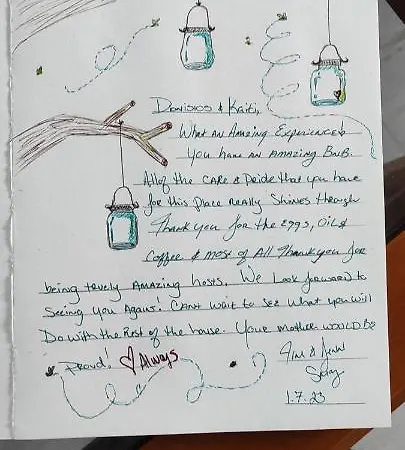 Dionisios & Kaiti,
What an Amazing Experience!
You have an AMAZING BnB.
All of the CARE & Pride that you have
for this Place Really Shines through
Thank you for the Eggs, Oil &
Coffee & most of All Thank you for
being truly Amazing hosts. We Look forward to
Seeing you Again! Can't wait to See what you will
Do with the Rest of the house. Your Mother WOULD BE
Proud! Always
&
1.7.23